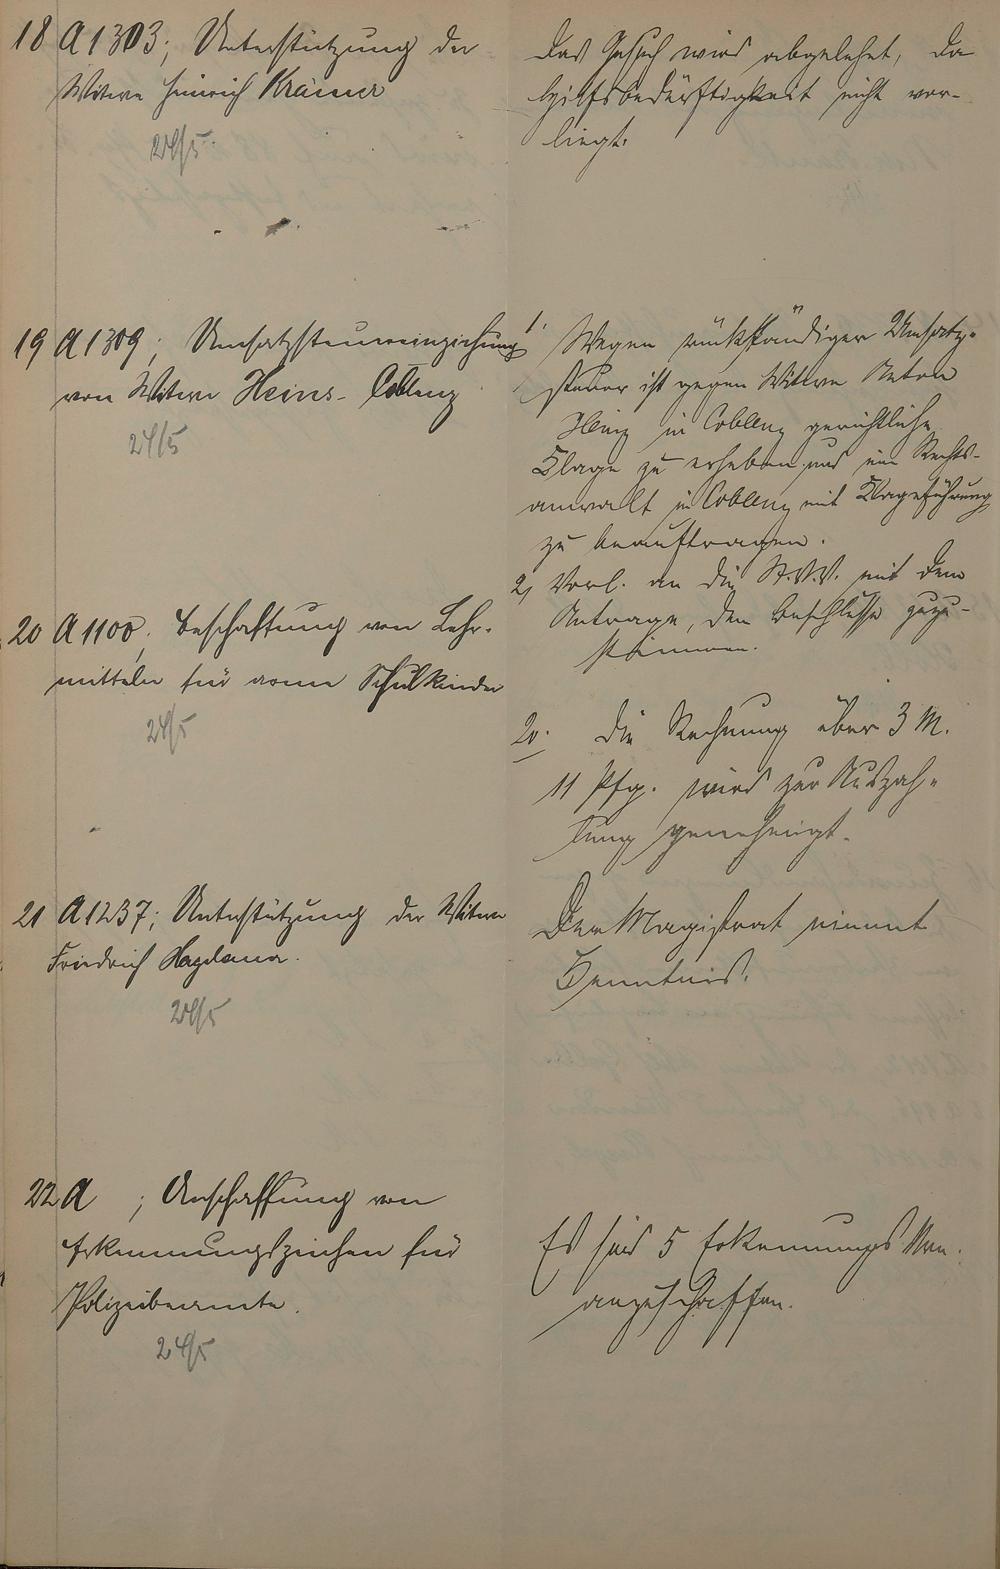 18 A 1303; Unterstützung der
Witwe Heinrich Krämer
24/5
Das Gesuch wird abgelehnt, da
Hilfsbedürftigkeit nicht vor-
liegt.
19 A 1309; Umsatzsteuereinziehung
von Witwe Heins- Coblenz
24/5
1. Wegen rückständiger Umsatz-
steuer ist gegen Witwe Anton
Heinz in Coblenz gerichtliche
Klage zu erheben und ein Rechts-
anwalt in Coblenz mit Klageführung
zu beauftragen.
2, Vorl. an die St.V.V. mit dem
Antrage, dem Beschlusse zuzu-
stimmen.
20 A 1100; Beschaffung von Lehr-
mitteln für arme Schulkinder
24/5
20. Die Rechnung über 3 M.
11 Pfg. wird zur Auszah-
lung genehmigt.
21 A 1237; Unterstützung der Witwe
Friedrich
24/5
Der Magistrat nimmt
Kenntnis.
22 A ; Anschaffung von
Erkennungszeichen für
Polizeibeamte.
24/5
Es sind 5 Erkennungs
angeschaffen.